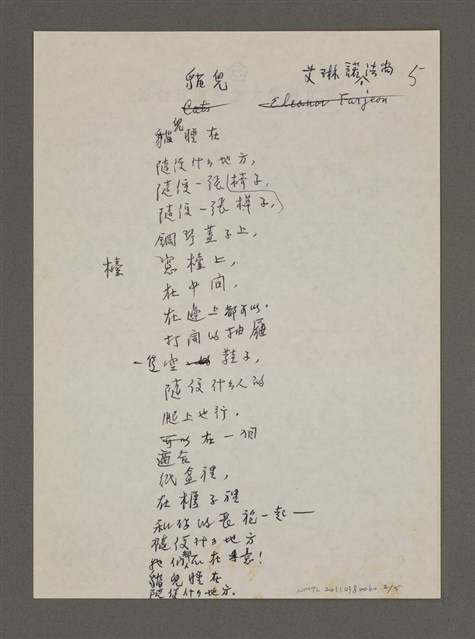 貓兒
艾琳諾‧法尚 5
Cats
Eleanor Farjeon
貓兒睡在
隨便什么地方,
隨便一張椅子,
隨便一張樟子,
鋼琴蓋子上,
窓檯上,
檯
在中間,
在邊上都可以.
打開的抽屜
一隻空 鞋子,
隨便什么人的
腿上也行.
可以在一個
適合
纸盒裡,
在櫃子裡
和你的衣袍一起——
隨便什么地方
牠們不在意!
貓兒睡在
隨便什么地方.
NMTL 20110380060 2/5